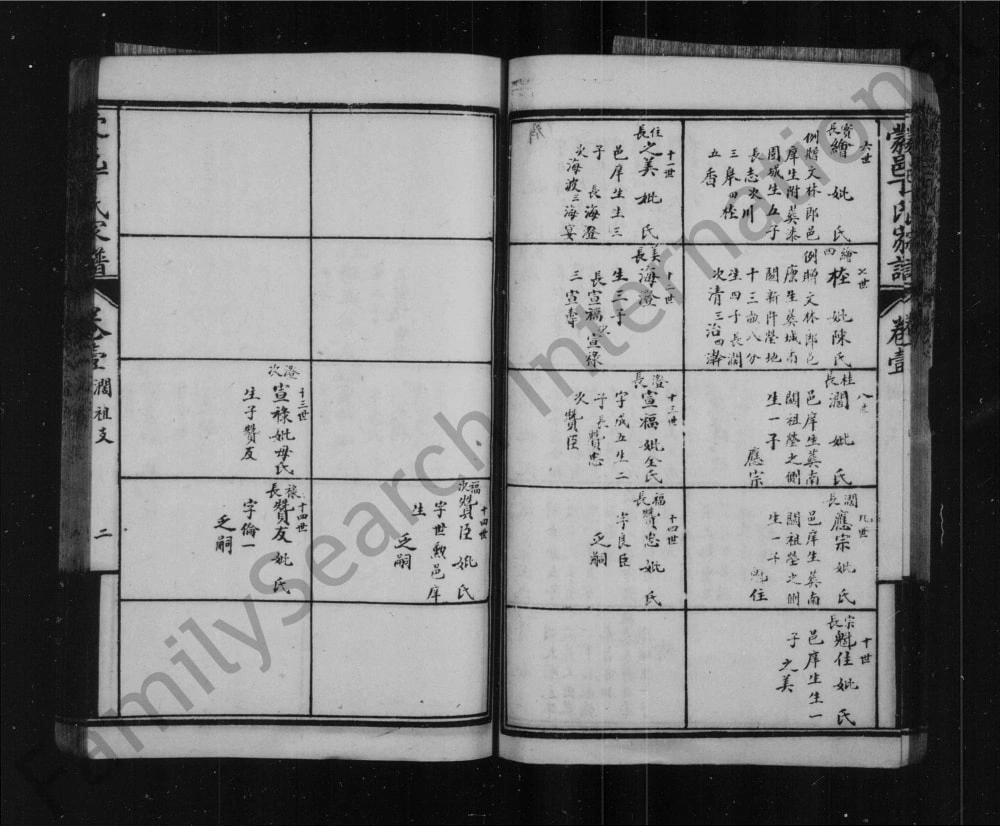 六世
寳長
繪 妣 氏
例贈文林郎邑
庠生附葬漆
園城生五子
長志次川
三皋四桂
五香
七世
繪四
桂 妣陳氏
例贈文林郎邑
庠生葬城南
關新阡塋地
十三畝八分
生四子長濶
次清三治四瀚
桂長
濶 妣 氏
邑庠生葬南
關祖塋之側
生一子
應宗
濶長
九世
應宗妣 氏
邑庠生葬南
關祖塋之側
生一子
魁佳
宗長
十世
魁佳妣 氏
邑庠生生一
子 之美
卷壹
十一世
佳長
之美 妣 氏
邑庠生生三
子 長海澄
次海波三海宴
美長
海澄 妣 氏
生三子
長宣福次宣祿
三宣壽
十三世
澄長
宣福妣仝氏
字成五生二
子長贊忠
次贊臣
十四世
福長
贊忠 妣 氏
字良臣
乏嗣
十四世
福次
贊臣 妣 氏
字世勲邑庠
生
乏嗣
十三世
澄次
宣祿妣母氏
生子贊友
十四世
祿長
贊友 妣 氏
字倫一
乏嗣
氏家譜
卷壹
濶祖支
二
FamilySearch International